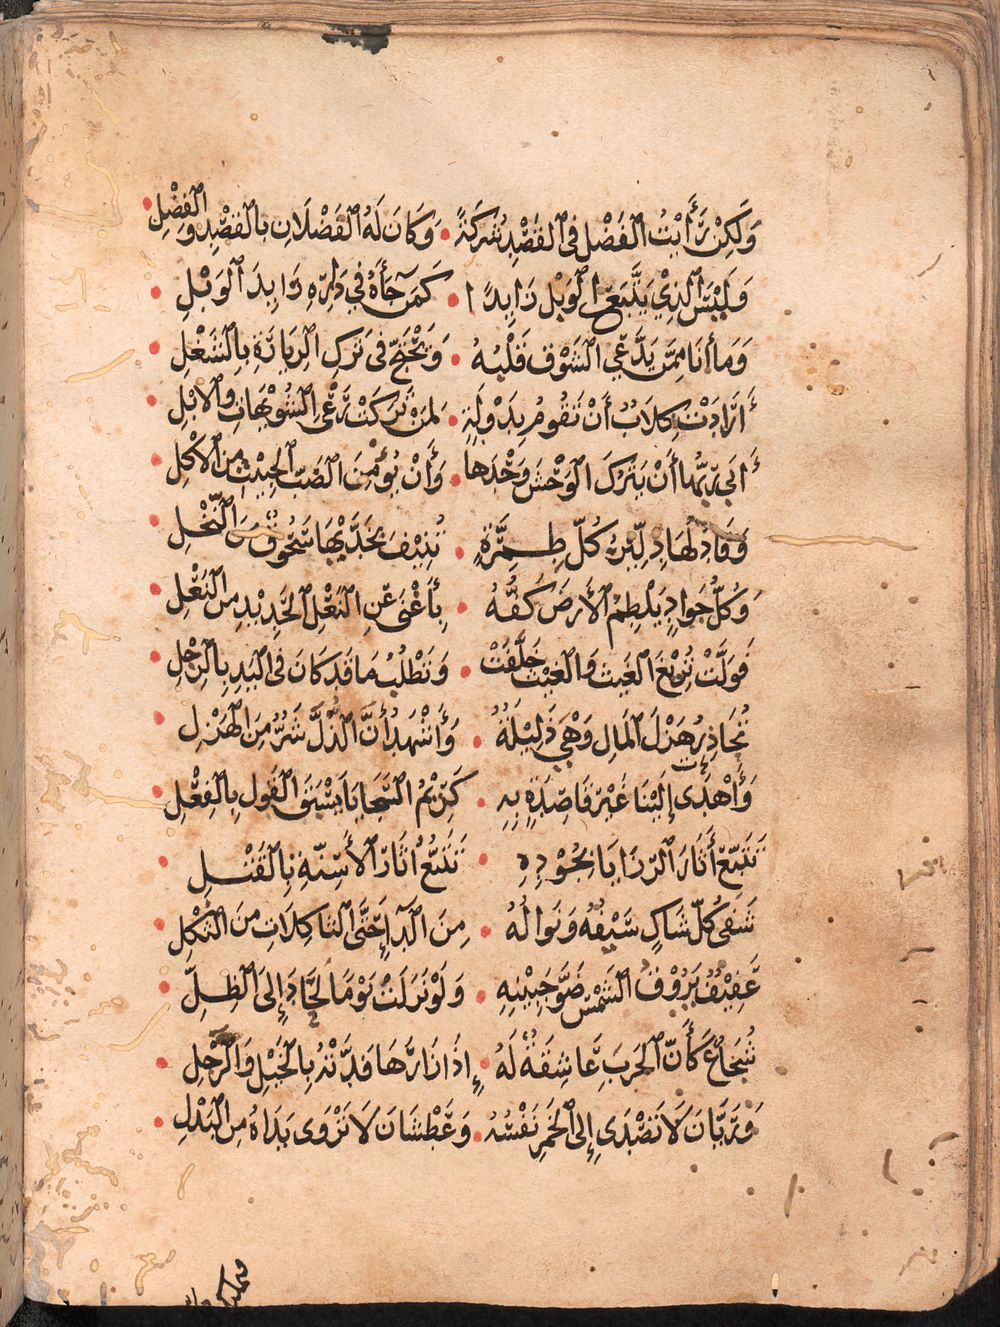 وَلَكِنْ رَأَيْتُ الفَضْلَ فِي القَصْدِ شَرِكَةً • وَكَانَ لَهُ الفَضْلَانِ بِالقَصْدِ وَالفَضْلِ •
وَلَيْسَ الَّذِي يَتَّبَّعُ الوَبْلَ رَايِدًا • كَمَنْ جَآءَهُ فِي دَارِهِ رَايِدُ الوَبْلِ •
وَمَا أَنَا مِمَّنْ يَدَّعِي الشَّوْقَ قَلْبُهُ • وَيَحْتَجُّ فِي تَرْكِ الزِّيَارَةِ بِالشُّغْلِ •
أَرَادَتْ كِلَابٌ أَنْ تَقُومَ بِدَوْلَةٍ • لِمَنْ تَرَكَتْ رَعْيَ الشُّوَيْهَاتِ وَالإِبْلِ •
أَبَى رَبُّهَا أَنْ يَتْرُكَ الوَحْشَ وَحْدَهَا • وَأَنْ يُؤْمِنَ الضَّبَّ الخَبِيْثَ مِنَ الأَكْلِ •
وَقَادَ لَهَا دِلِّيرُ كُلَّ طِمِرَّةٍ • تُنِيْفُ بِخَدَّيْهَا سَحُوقٌ مِنَ النَّخْلِ •
وَكُلُّ جَوَادٍ يَلْطِمُ الأَرْضَ كَفُّهُ • بِأَغْنَى عَنِ النَّعْلِ الحَدِيْدِ مِنَ النَّعْلِ •
فَوَلَّتْ تُرِيْغُ الغَيْثَ وَالغَيْثَ خَلَّفَتْ • وَتَطْلُبُ مَا قَدْ كَانَ فِي اليَدِ بِالرِّجْلِ •
تُحَاذِرُ هَزْلَ المَالِ وَهْيَ ذَلِيْلَةٌ • وَأَشْهَدُ أَنَّ الذُّلَّ شَرٌّ مِنَ الهَزْلِ
وَأَهْدَتْ إِلَيْنَا غَيْرَ قَاصِدَةٍ بِهِ • كَرِيْمُ السَّجَايَا يَسْبِقُ القَوْلَ بِالفِعْلِ •
تَتَبَّعَ أَثَارَ الرَّزَايَا بِجُوْدِهِ • تَتَبُّعَ أَثَارِ الأَسِنَّةِ بِالقَتْلِ •
شَفَى كُلَّ شَاكٍ سَيْفُهُ وَنَوَالُهُ • مِنَ الدَّآءِ حَتَّى الثَّاكِلَاتِ مِنَ الثُّكْلِ •
عَفِيْفٌ يَرُوْقُ الشَّمْسَ ضَوُّ جَبِيْنِهِ • وَلَوْ نَزَلَتْ يَوْمًا لَحَادَ إِلَى الظِّلِّ •
شُجَاعٌ كَأَنَّ الحَرْبَ عَاشِقَةٌ لَهُ • إِذَا زَارَهَا فَدَّتْهُ بِالخَيْلِ وَالرَّجْلِ •
وَرَيَّانَ لَا تَصْدَى إِلَى الخَمْرِ نَفْسُهُ • وَعَطْشَانَ لَا تَرْوَى يَدَاهُ مِنَ البَذْلِ •